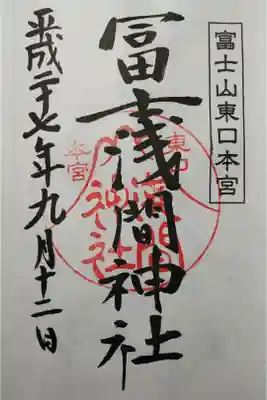 富士山東口本宮
冨士浅間神社
平成二十七年九月十二日
東口
本宮